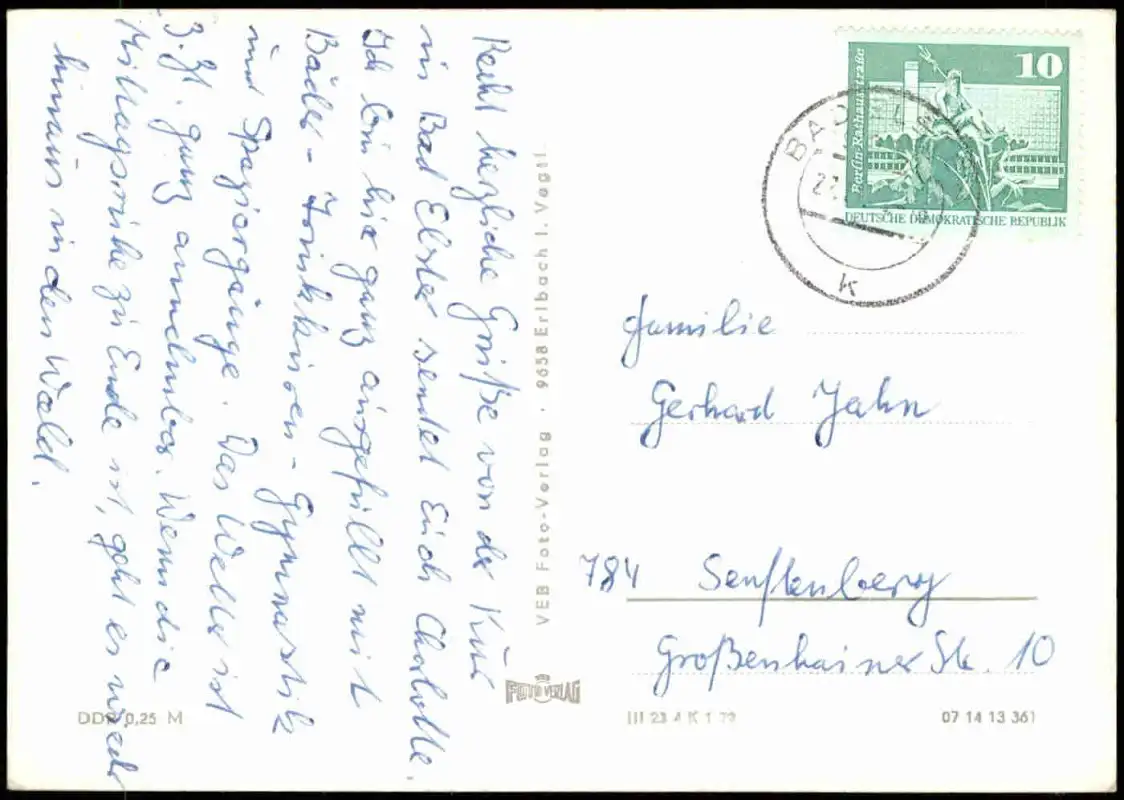 Recht herzliche Grüße von der Kur
in Bad Elster sendet Euch Charlotte.
Ich bin hier ganz ausgefüllt mit
Bäder - Trinkkuren - Gymnastik
und Spaziergänge. Das Wetter ist
z. Zt. ganz annehmbar. Wenn die
Mittagsruhe zu Ende ist, geht es wieder
hinaus in den Wald.
VEB Foto-Verlag · 9658 Erlbach i. Vogtl.
FOTO VERLAG
DDR 0,25 M
10
Berlin-Rathausstraße
DEUTSCHE DEMOKRATISCHE REPUBLIK
BAD
k
Familie
Gerhard Jahn
784 Senftenberg
Großenhainer Str. 10
III 23 4 K 1 72
07 14 13 361